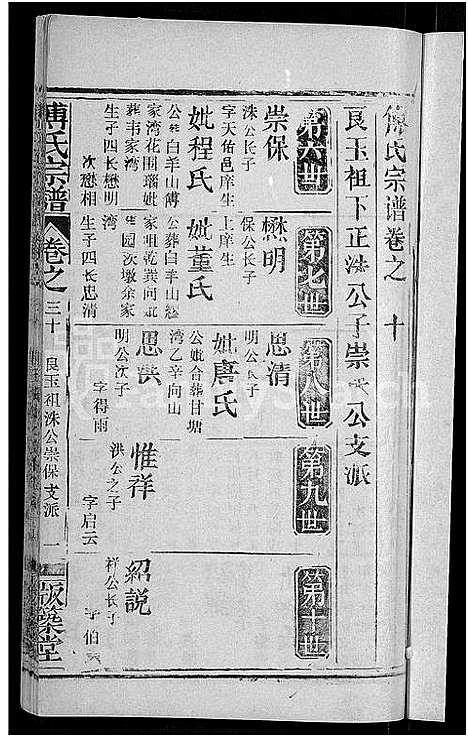 傅氏宗谱卷之 十
良玉祖下正洙公子崇 公支派
第六世
第七世
第八世
第九世
第十世
崇保
洙公长子
字天佑邑庠生
妣程氏
公 白羊山傅
家湾花园瑙妣
葬韦家湾
生子四长懋明
次懋相
懋明
保公长子
上庠生
妣董氏
公葬白羊山
家咀乾巽向妣
园次墩余家
湾
生子四长思清
思清
明公长子
妣唐氏
公妣合葬甘塘
湾乙辛向山
思洪
明公次子
字得雨
惟祥
洪公之子
字启云
绍说
祥公长子
字伯
傅氏宗谱
卷之
三十
良玉祖洙公崇保支派
一
版筑堂